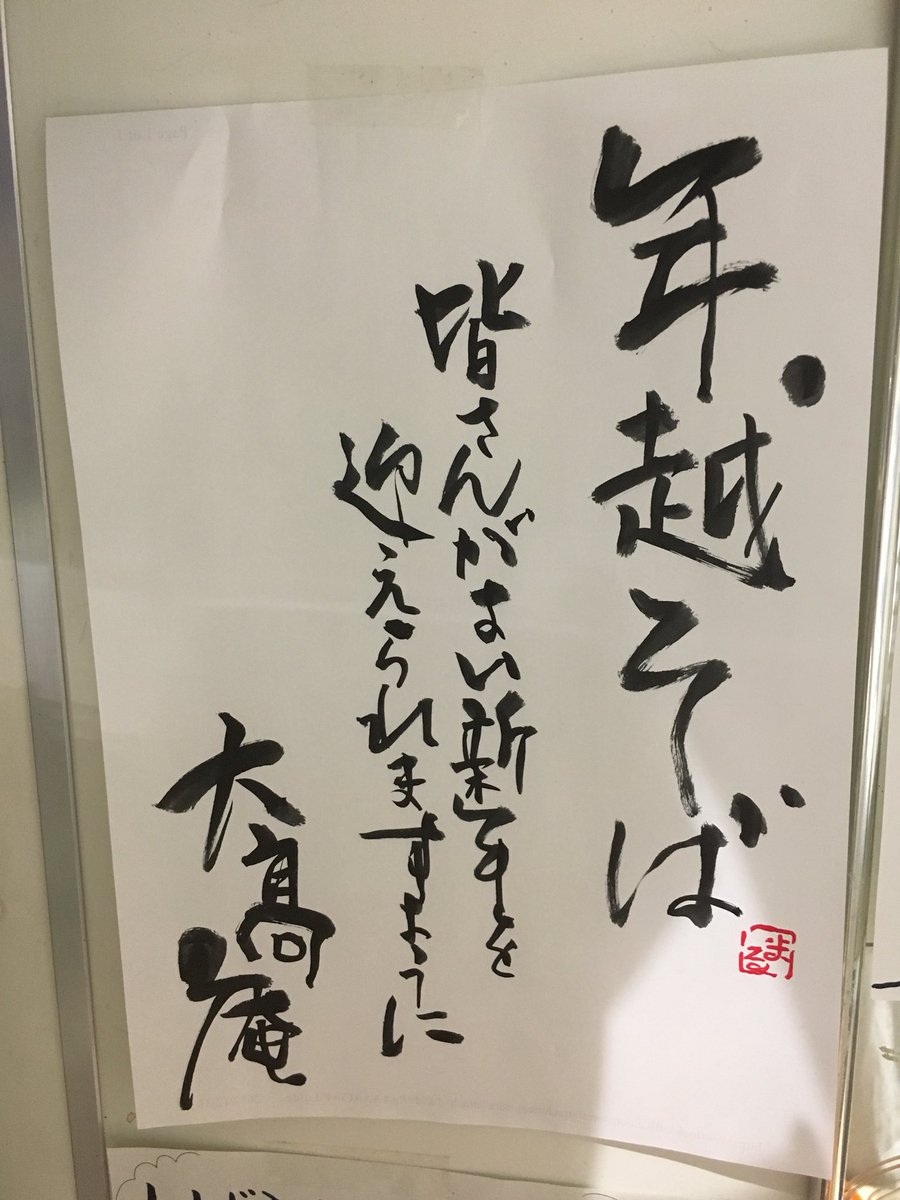 年越そば
皆さんがよい新年を
迎えられますように
大高庵